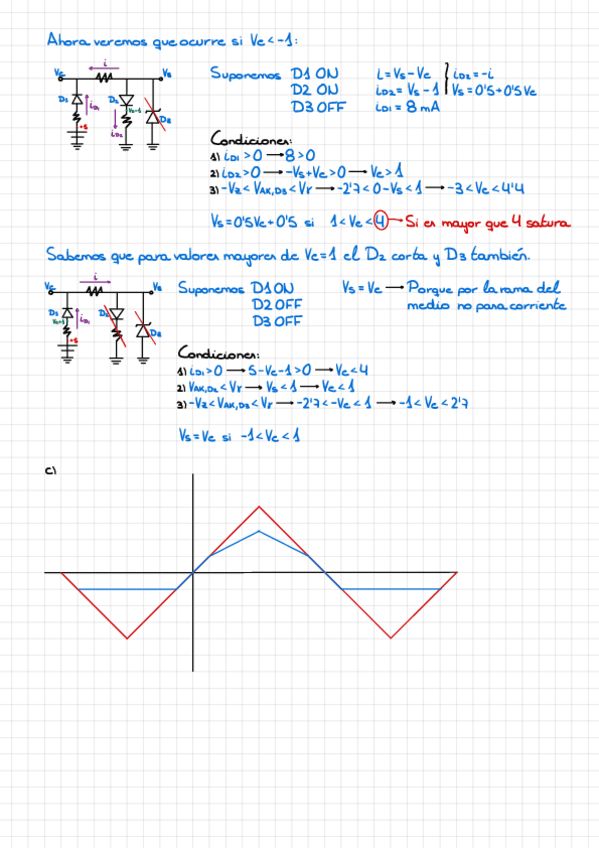 Ahora veremos que ocurre si Ve<-1:
i
Ve Vs
D1 iD1 D2 Vs-1
iD2
-5
Suponemos D1 ON
D2 ON
D3 OFF
i=Vs-Ve
iD2= Vs-1
iD1= 8mA
iD2=-i
Vs=0'5+0'5Ve
Condiciones:
1) iD1>0 → 8>0
2) iD2>0 → -Vs+Ve>0 → Ve>1
3) -Vz< VAK,D3< Vr → -2'7<0-Vs<1 → -3<Ve<4'4
Vs=0'5Ve+0'5 si 1<Ve<4 → Si es mayor que 4 satura
Sabemos que para valores mayores de Ve=1 el D2 corta y D3 también.
i
Ve Vs
D1 iD1 D2
-5
Suponemos D1 ON
D2 OFF
D3 OFF
Vs=Ve → Porque por la rama del
medio no para corriente
Condiciones:
1) iD1>0 → 5-Ve-1>0 → Ve<4
2) VAK,D2< Vr → Vs<1 → Ve<1
3) -Vz<VAK,D3<Vr → -2'7<-Ve<1 → -1<Ve<2'7
Vs=Ve si -1<Ve<1
c)